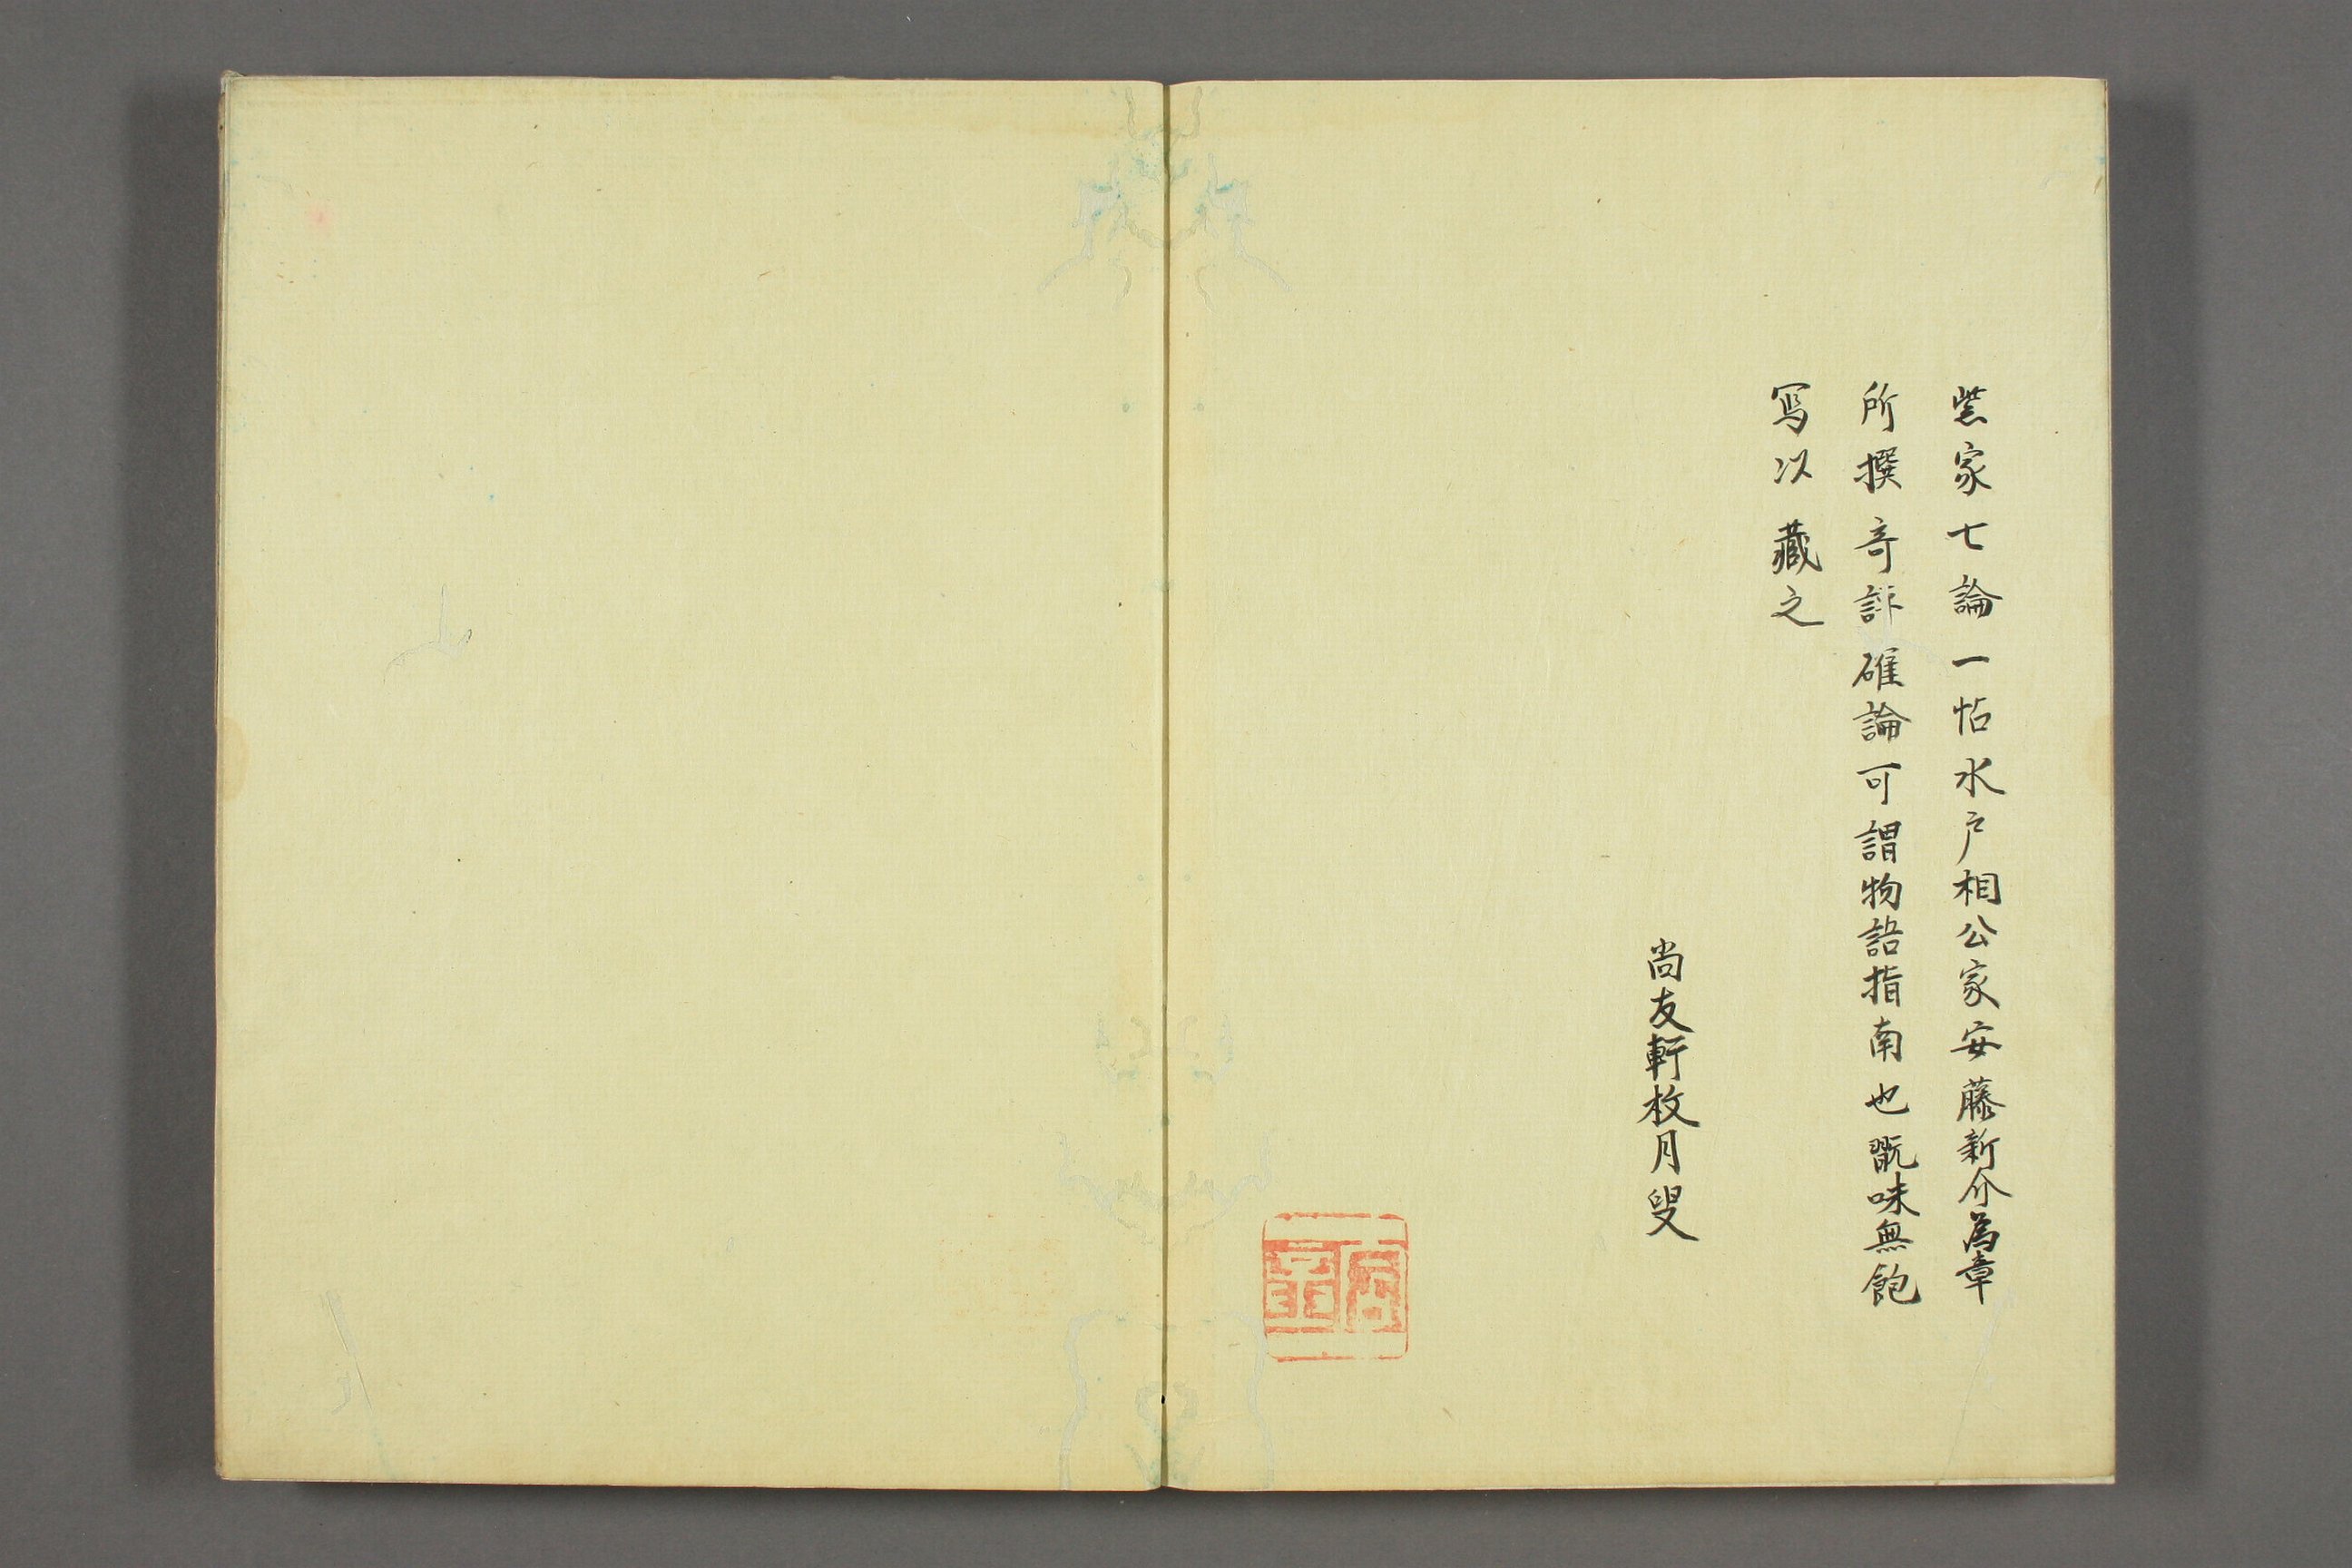 紫家七論一帖水戸相公家安藤新介為章
所撰奇評確論可謂物語指南也翫味無飽
写以藏之
尚友軒枚月叟